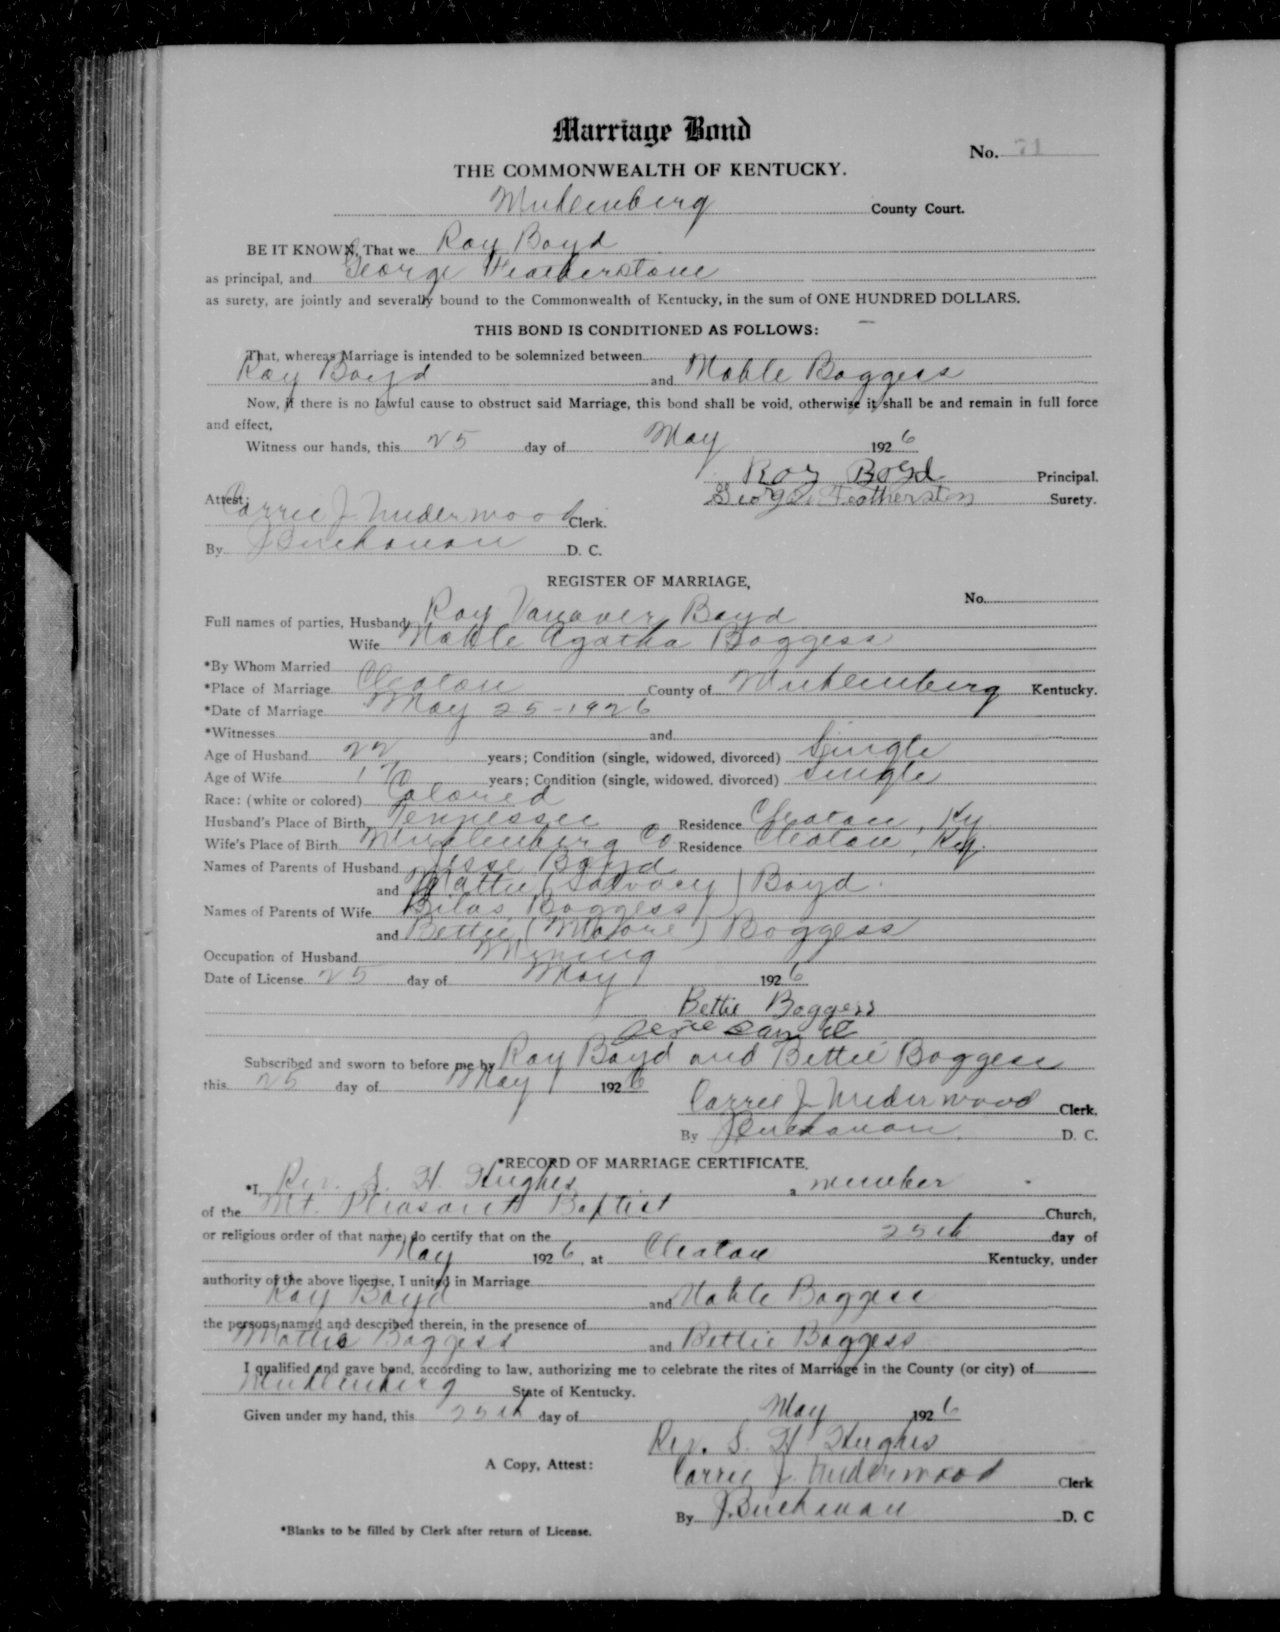 Marriage Bond
No. 71
THE COMMONWEALTH OF KENTUCKY.
Muhlenberg County Court.
BE IT KNOWN, That we Roy Boyd
as principal, and George Featherstone
as surety, are jointly and severally bound to the Commonwealth of Kentucky, in the sum of ONE HUNDRED DOLLARS.
THIS BOND IS CONDITIONED AS FOLLOWS:
That, whereas Marriage is intended to be solemnized between
Roy Boyd and Noble Boggess
Now, if there is no lawful cause to obstruct said Marriage, this bond shall be void, otherwise it shall be and remain in full force
and effect,
Witness our hands, this 25 day of May 1926
Roy Boyd Principal.
George Featherston Surety.
Attest: Carrie J. Underwood Clerk.
By J Buchanan D. C.
REGISTER OF MARRIAGE,
No.
Full names of parties, Husband Roy Vanover Boyd
Wife Noble Agatha Boggess
*By Whom Married
*Place of Marriage Cleaton County of Muhlenberg Kentucky.
*Date of Marriage May 25-1926
*Witnesses and
Age of Husband 22 years; Condition (single, widowed, divorced) Single
Age of Wife years; Condition (single, widowed, divorced) Single
Race: (white or colored) Colored
Husband's Place of Birth Tennessee Residence Cleaton, Ky
Wife's Place of Birth Muhlenberg Co Residence Cleaton, Ky.
Names of Parents of Husband Jesse Boyd
and Mattie ( ) Boyd
Names of Parents of Wife Silas Boggess
and Bettie (Moore) Boggess
Occupation of Husband Mining
Date of License 25 day of May 1926
Bettie Boggess
Subscribed and sworn to before me by Roy Boyd and Bettie Boggess
this 25 day of May 1926
Carrie J. Underwood Clerk.
By J Buchanan D. C.
*RECORD OF MARRIAGE CERTIFICATE.
*I, Rev. S. H. Hughes a member
of the Mt. Pleasant Baptist Church,
or religious order of that name, do certify that on the 25th day of
May 1926, at Cleaton Kentucky, under
authority of the above license, I united in Marriage
Roy Boyd and Noble Boggess
the persons named and described therein, in the presence of
Mattie Boggess and Bettie Boggess
I qualified and gave bond, according to law, authorizing me to celebrate the rites of Marriage in the County (or city) of
Muhlenberg State of Kentucky.
Given under my hand, this 25th day of May 1926
Rev. S. H. Hughes
A Copy, Attest: Carrie J. Underwood Clerk
By J. Buchanan D. C
*Blanks to be filled by Clerk after return of License.